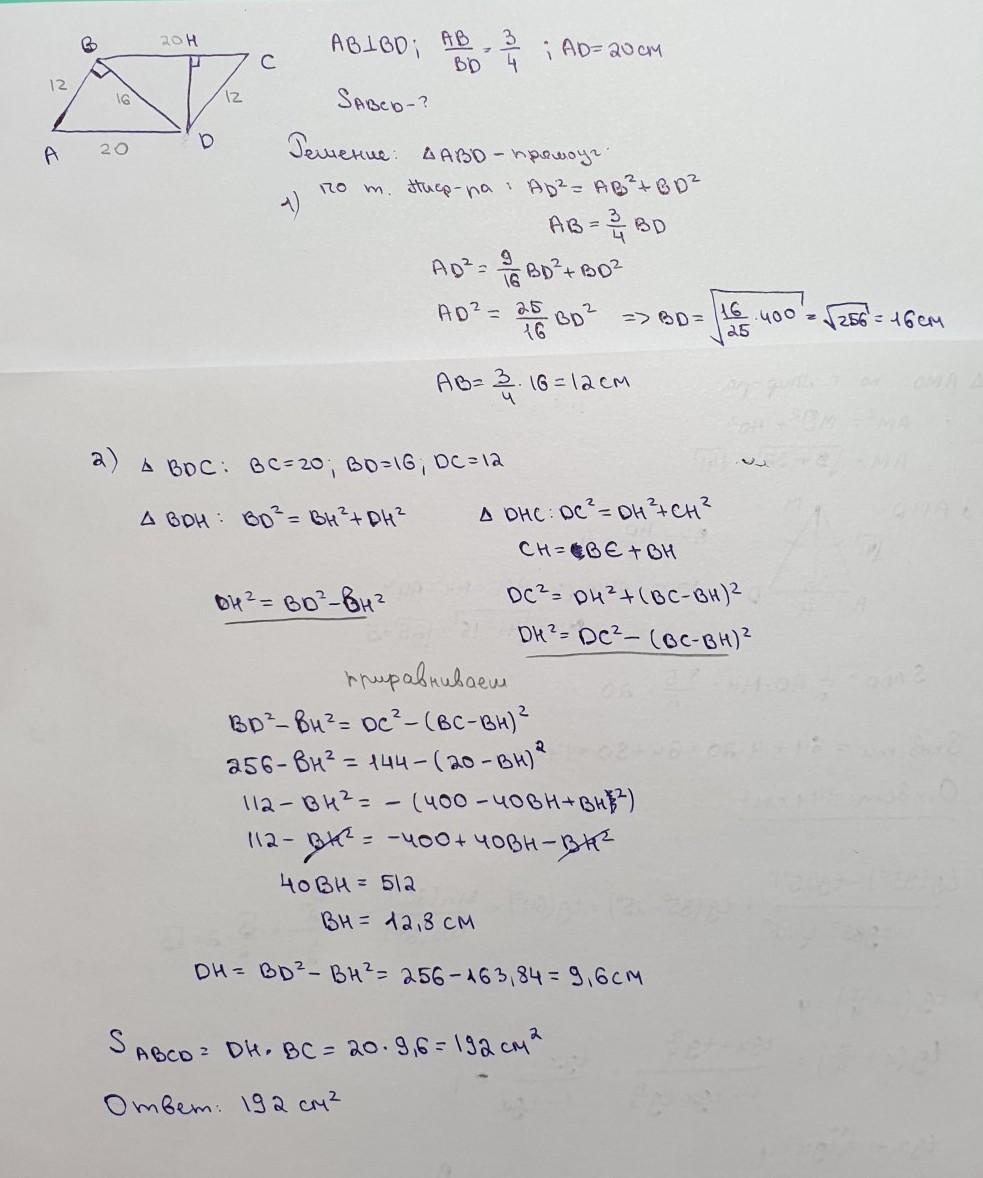 B 20 H C
12 16 12
A 20 D
AB⊥BD; AB/BD = 3/4 ; AD=20см
SABCD-?
Решение: △ABD-прямоуг.
1) по т. Пифр-ра: AD²=AB²+BD²
AB=3/4 BD
AD²=9/16 BD²+BD²
AD²=25/16 BD² => BD=√(16/25·400)=√256=16см
AB=3/4·16=12см
2) △ BDC: BC=20; BD=16; DC=12
△ BDH: BD²=BH²+DH² △ DHC: DC²=DH²+CH²
CH=BC+BH
DH²=BD²-BH² DC²=DH²+(BC-BH)²
DH²=DC²-(BC-BH)²
приравниваем
BD²-BH²=DC²-(BC-BH)²
256-BH²=144-(20-BH)²
112-BH²=-(400-40BH+BH²)
112-BH²=-400+40BH-BH²
40BH=512
BH=12,8 см
DH=BD²-BH²=256-163,84=9,6см
SABCD=DH·BC=20·9,6=192 см²
Ответ: 192 см²